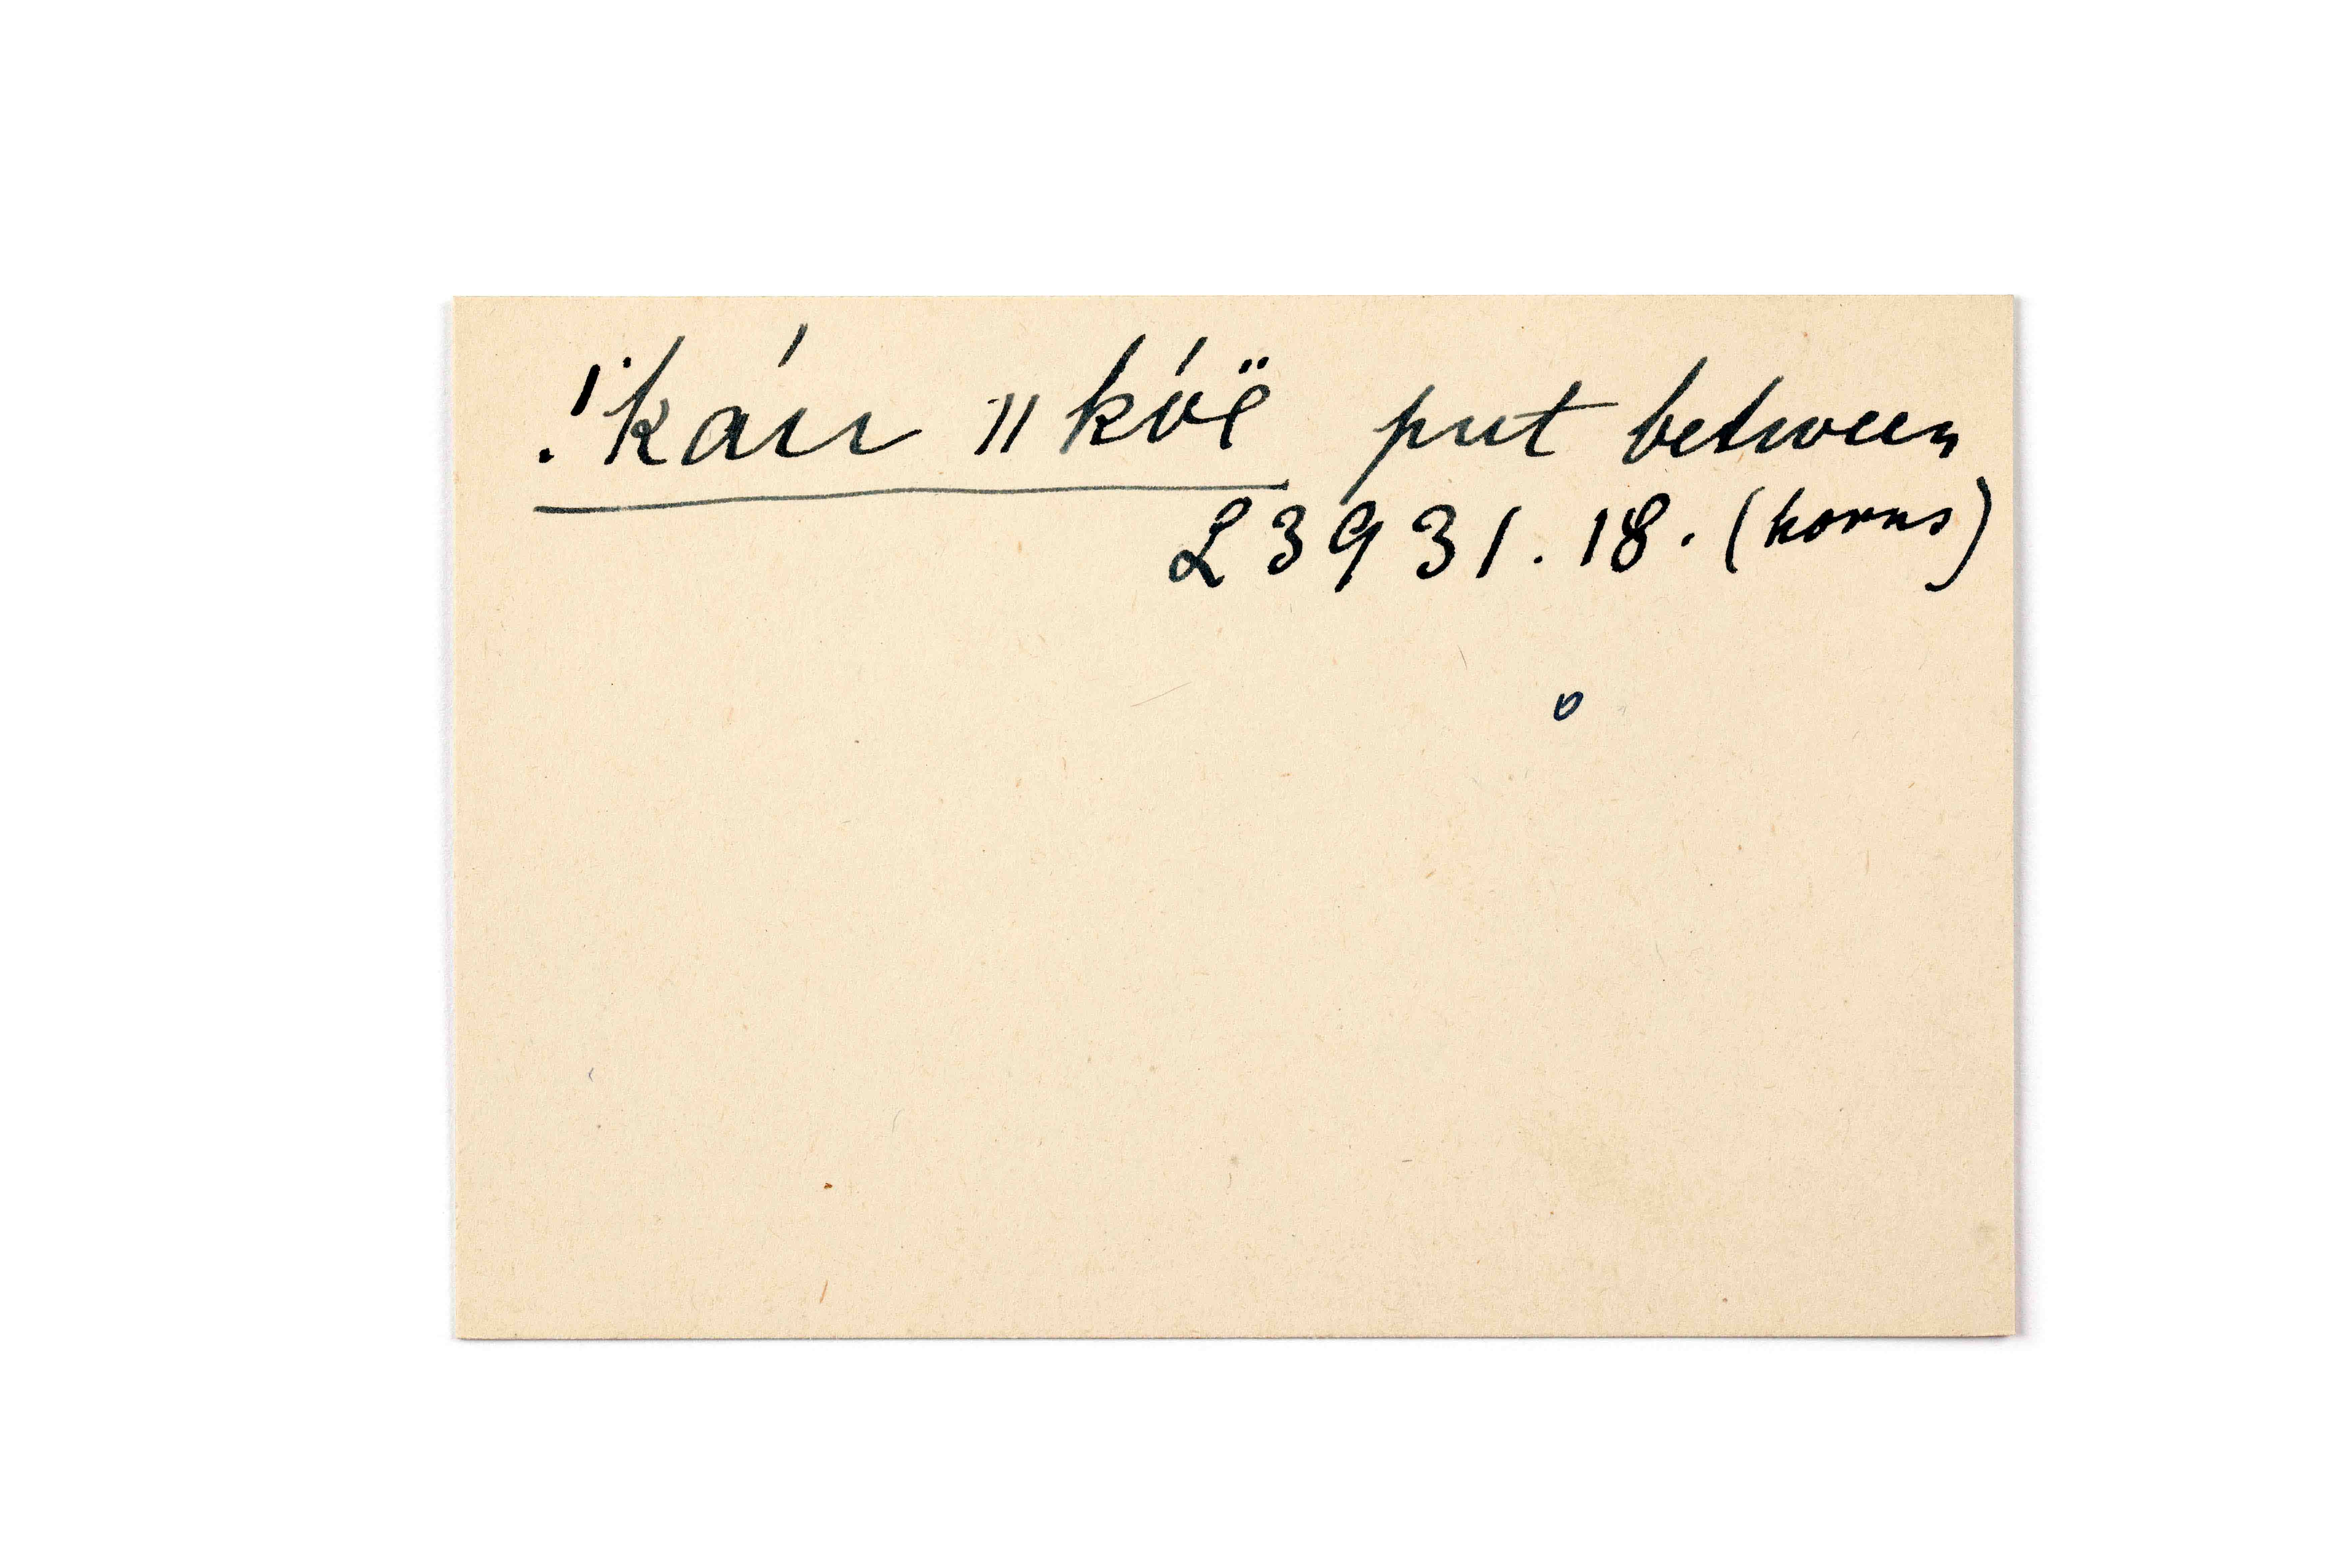 !k̇áıı ǁkóë put between
L3931.18. (horns)